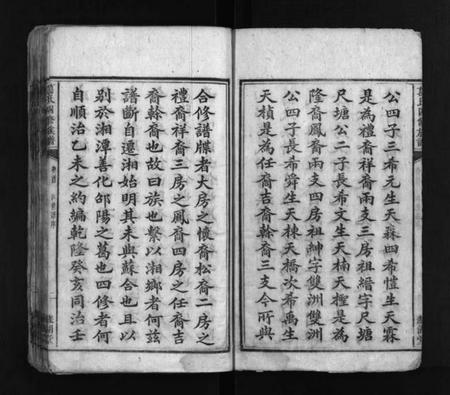 公四子三希元生天霖四希愷生天霖
是為禮裔祥裔兩支三房祖縉字尺塘
尺塘公二子長希文生天楠天桱是為
隆裔鳳裔兩支四房祖紳字雙洲雙洲
公四子長希舜生天棟天橋次希禹生
天楨是為任裔吉裔幹裔三支今所與
合修譜牒者大房之懷裔松裔二房之
禮裔祥裔三房之鳳裔四房之任裔吉
裔幹裔也故曰族也繫以湘鄉者何茲
譜斷自遷湘始明其未與蘇合也且以
別於湘潭善化邵陽之葛也四修者何
自順治乙未之約編乾隆癸亥同治壬